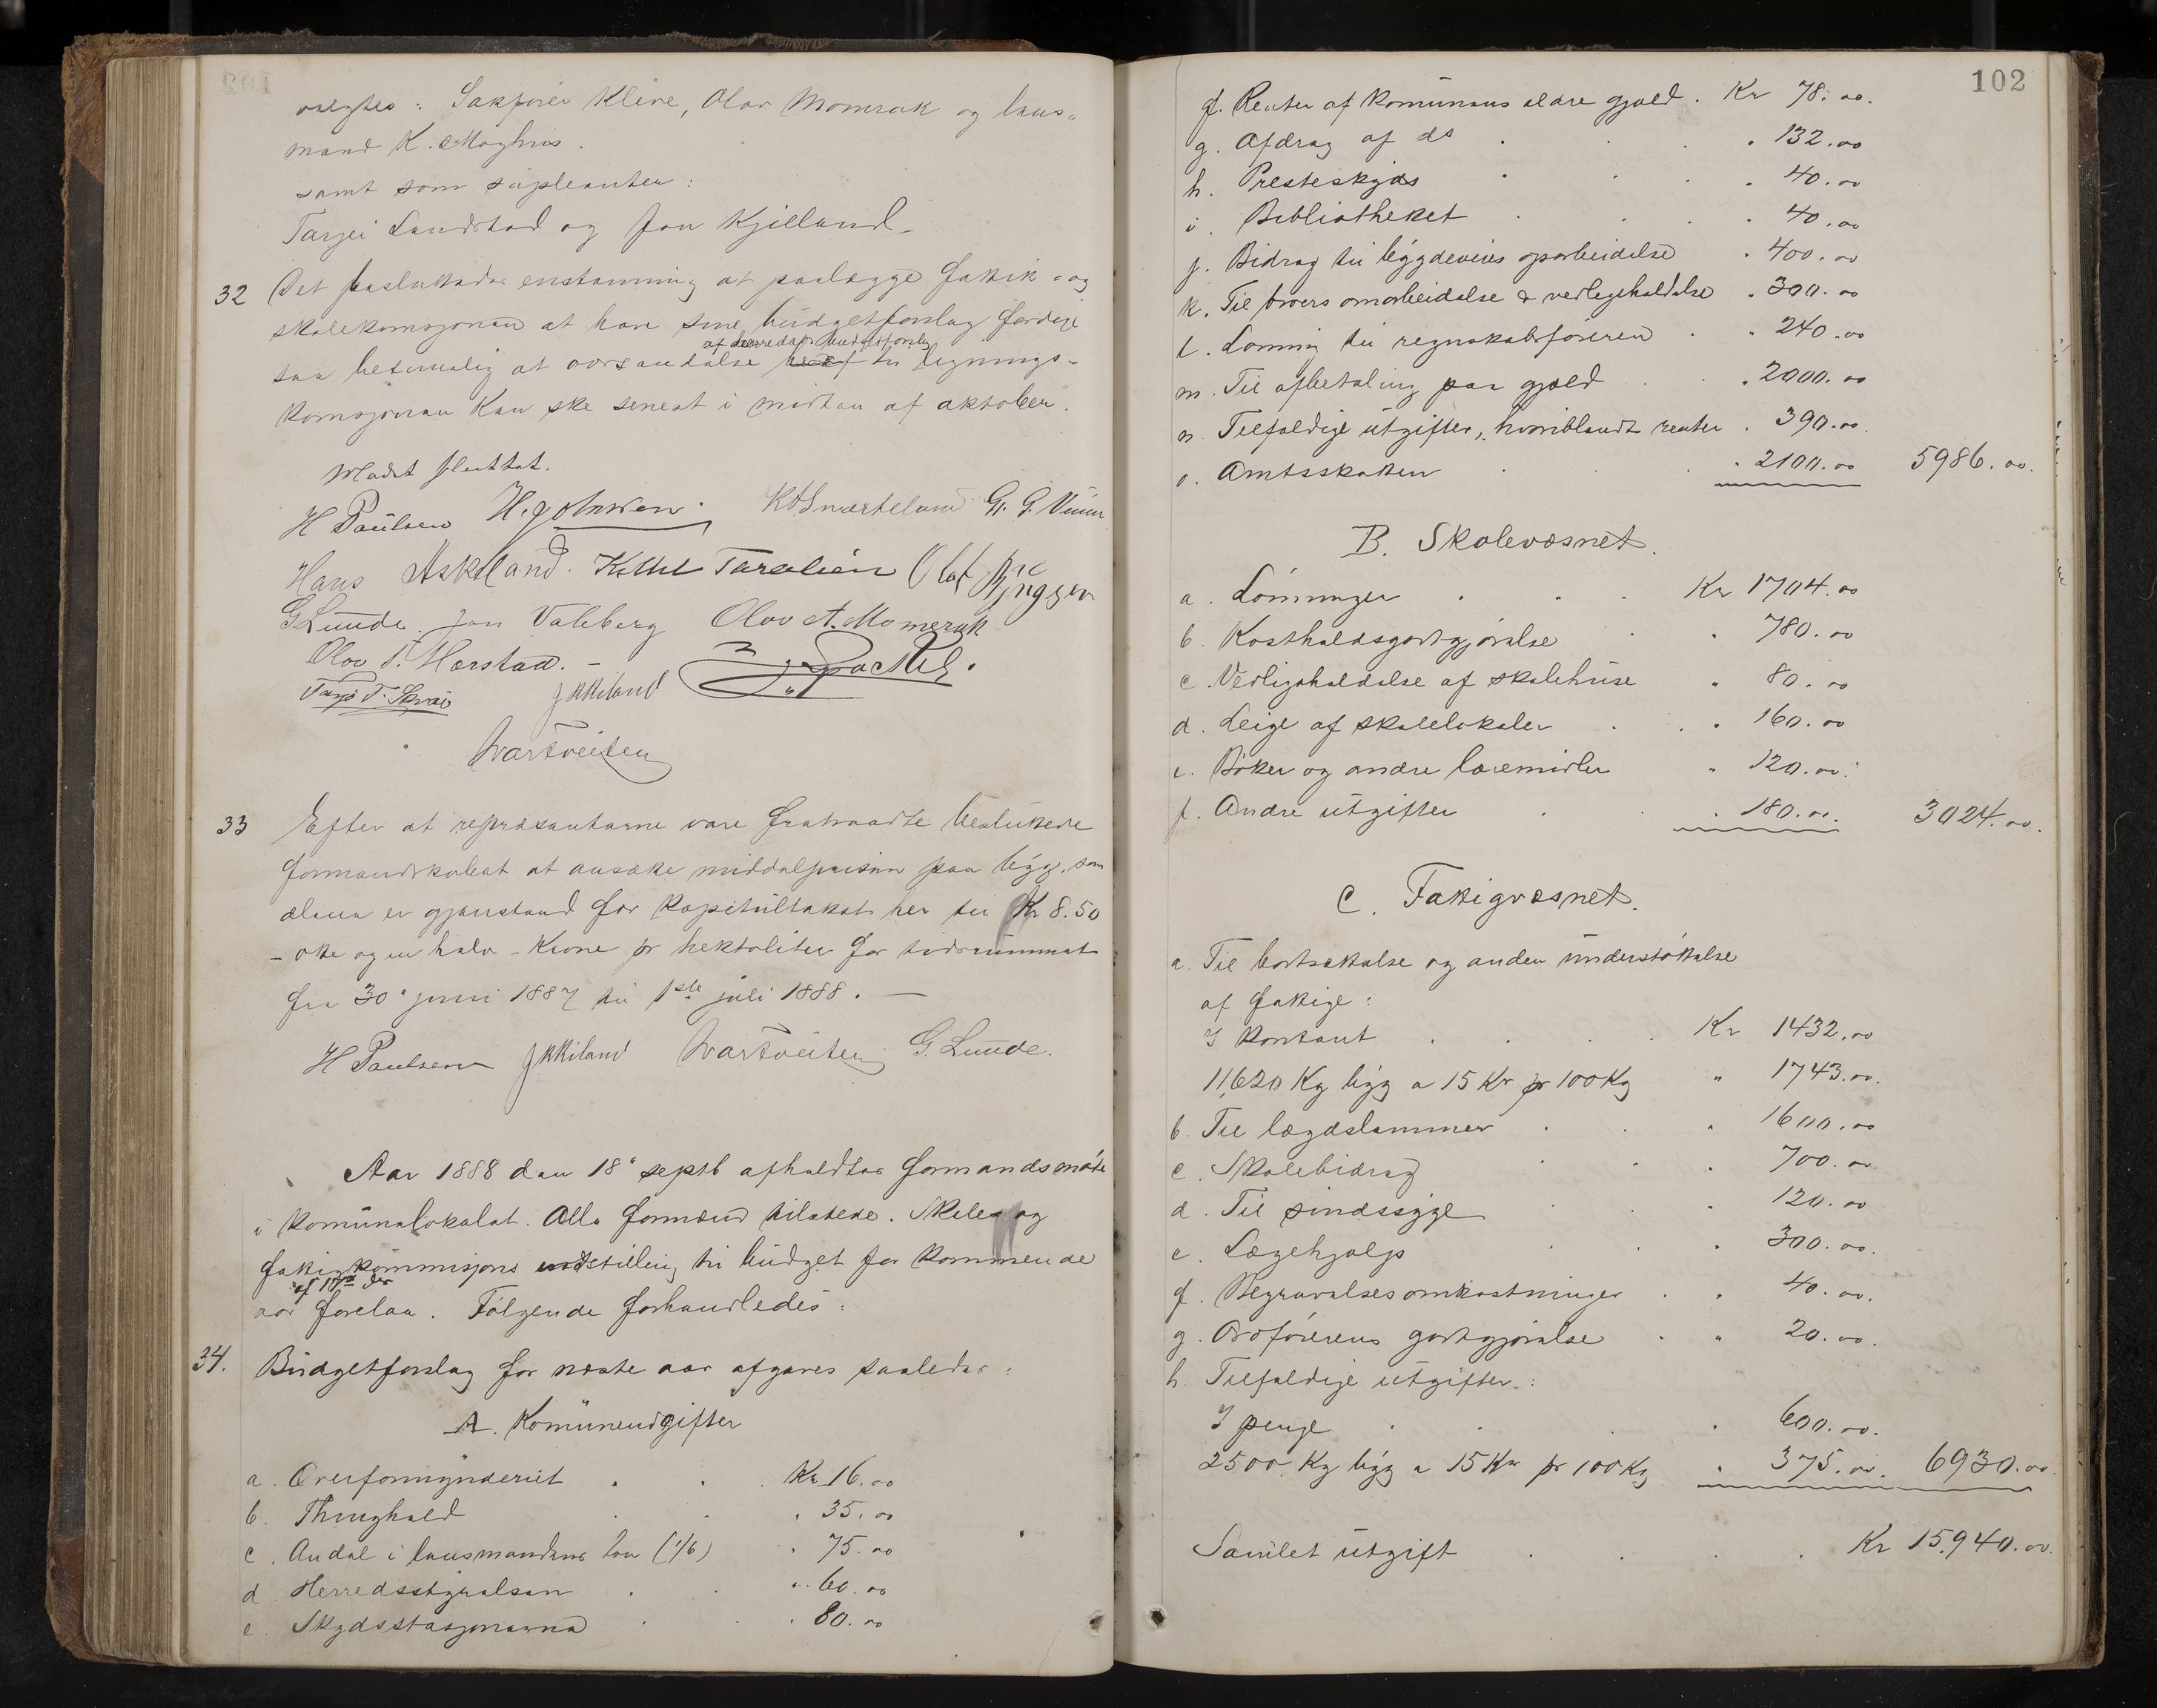 valgtes: Sakfører Kleve, Olav Momrak og lens-
mand K. Moghus.
samt som supleanter:
Tarjei Landstad og Jon Kjilland.
32 Det besluttedes enstemmig at paalægge fattik- og
skolekomsjonen at have sine budgetforslag færdige
af herredets budgetforslag
saa betimelig at oversendelse til lignings-
komsjonen kan ske senest i midten af oktober.
Mødet sluttet.
H Paulsen H. Johnsen K O Snarteland G. G. Vinn
Hans Askland. Kittil Taralien Olaf
G Lunde. Jon Valeberg Olav A. Momrak
Olav T. Harstad.
Tarjei T. J K Kiland
Svartveiten
33 Efter at repræsentanterne vare fratraadte besluttede
formandskabet at ansætte middelprisen paa byg, som
elena er gjenstand for kapitultakst her til Kr 8.50
- otte og en halv - Krone pr hektoliter for tidsrummet
fra 30 juni 1887 til 1ste juli 1888. —
H Paulsen J K Kiland Svartveiten G. Lunde.
Aar 1888 den 18 septb afholdtes formandsmøde
i komunelokalet. Alle formænd tilstede. Skole og
fattigkommisjons indstilling til budget for kommende
af 17de ds
aar forelaa. Følgende forhandledes:
34. Budgetforslag for næste aar afgaves saaledes:
A. Komüneudgifter
a. Overformynderiet . . Kr 16.00
b. Thinghold . . . 35.00
c. Andel i lensmandens løn (1/6) . 75.00
d Herredsstyrelsen . . . 60.00
e. Skydsstasjonerne . . . 80.00
102
f. Renter af komunens ældre gjæld. Kr 78.00.
g. Afdrag af do . . . . 132.00
h. Presteskyds . . . . 40.00
i. Bibliotheket . . . 40.00
j. Bidrag til bygdeveies oparbeidelse . 400.00
k. Til broers omarbeidelse & vedligeholdelse . 300.00
l. Lønning til regnskabsføreren . . 240.00
m. Til afbetaling paa gjæld . . . 2000.00
n. Tilfældige utgifter, hvoriblandt renter . 390.00.
o. Amtsskatten . . . 2100.00 5986.00.
B. Skolevæsnet.
a. Lønninger . . . Kr 1704.00
b. Kostholdsgodtgjørelse . " 780.00
c. Vedligeholdelse af skolehuse " 80.00
d. Leige af skolelokaler . . " 160.00
e. Bøker og andre læremidler " 120.00.
f. Andre utgifter . . . 180.00. 3024.00.
C. Fattigvæsnet.
a. Til bortsættelse og anden understøttelse
af fattige:
I kontant . . . . Kr 1432.00
11,620 Kg byg a 15 Kr pr 100 Kg " 1743.00.
b. Til lægdslemmer . . " 1600.00
c. Skolebidrag . . . 700.00
d. Til sindssyge . . " 120.00
e. Lægehjælp . . . 300.00.
f. Begravelsesomkostninger . . 40.00.
g. Ordførerens godtgjørelse . " 20.00.
h. Tilfældige utgifter:
I penge . . . . 600.00.
2500 Kg byg a 15 Kr pr 100 Kg . 375.00. 6930.00.
Samlet utgift . . . . Kr 15,940.00.